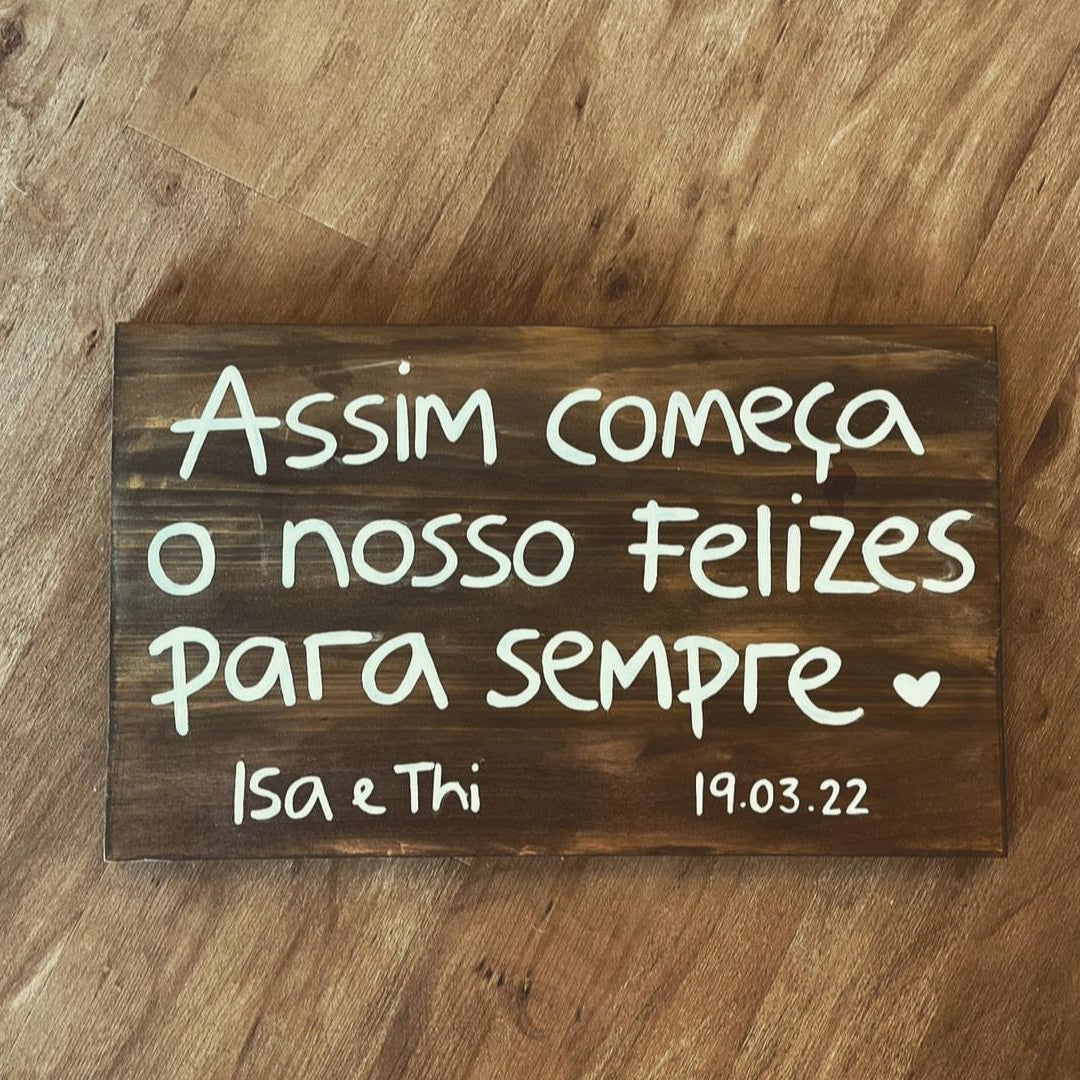 Assim começa
o nosso Felizes
para sempre ♥
Isa e Thi
19.03.22